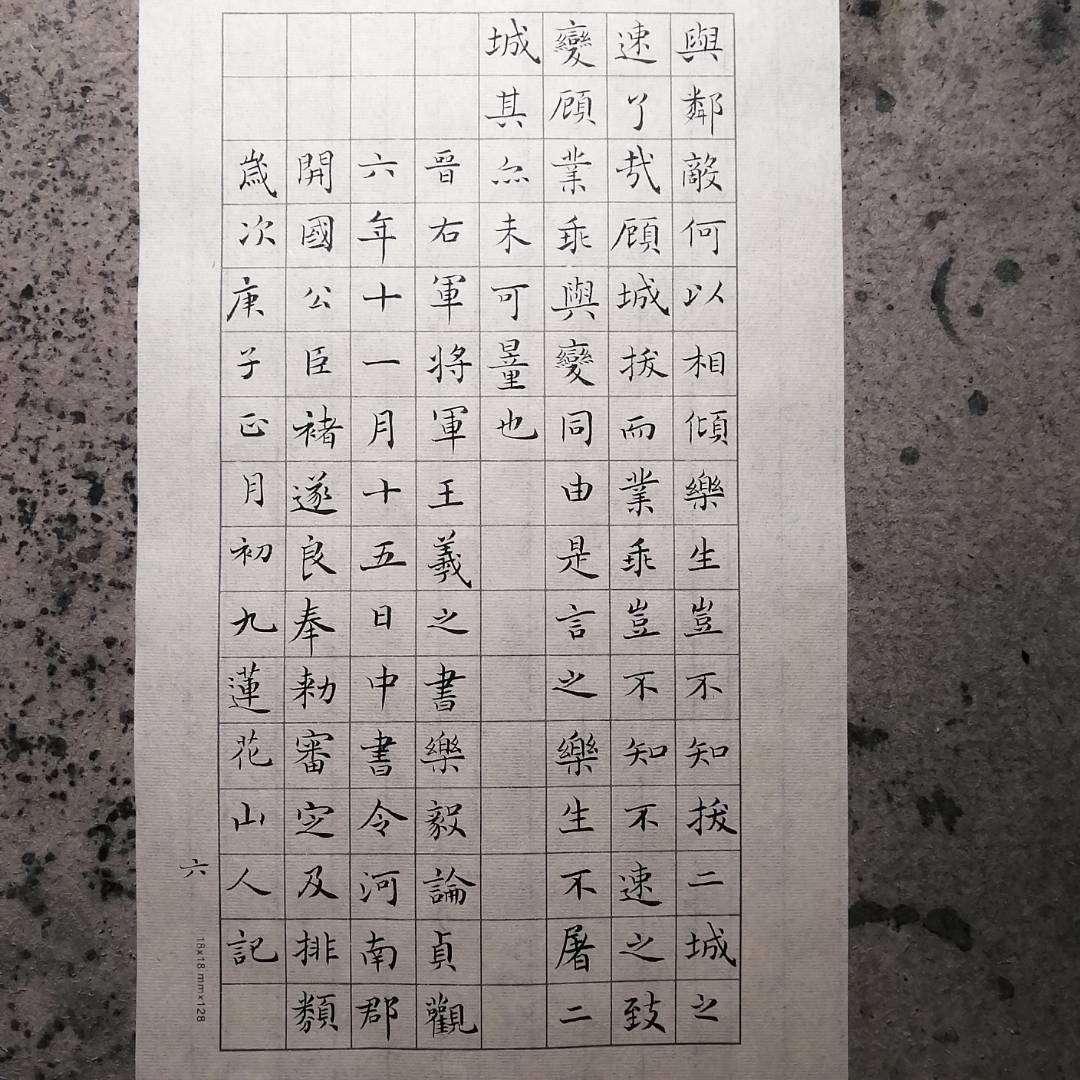 與鄰敵何以相傾樂生豈不知拔二城之
速了㦲顧城拔而業乖豈不知不速之致
變顧業乖與變同由是言之樂生不屠二
城其亦未可量也
晉右軍將軍王羲之書樂毅論貞觀
六年十一月十五日中書令河南郡
開國公臣褚遂良奉勑審定及排類
歲次庚子正月初九蓮花山人記
六
18x18mm×128